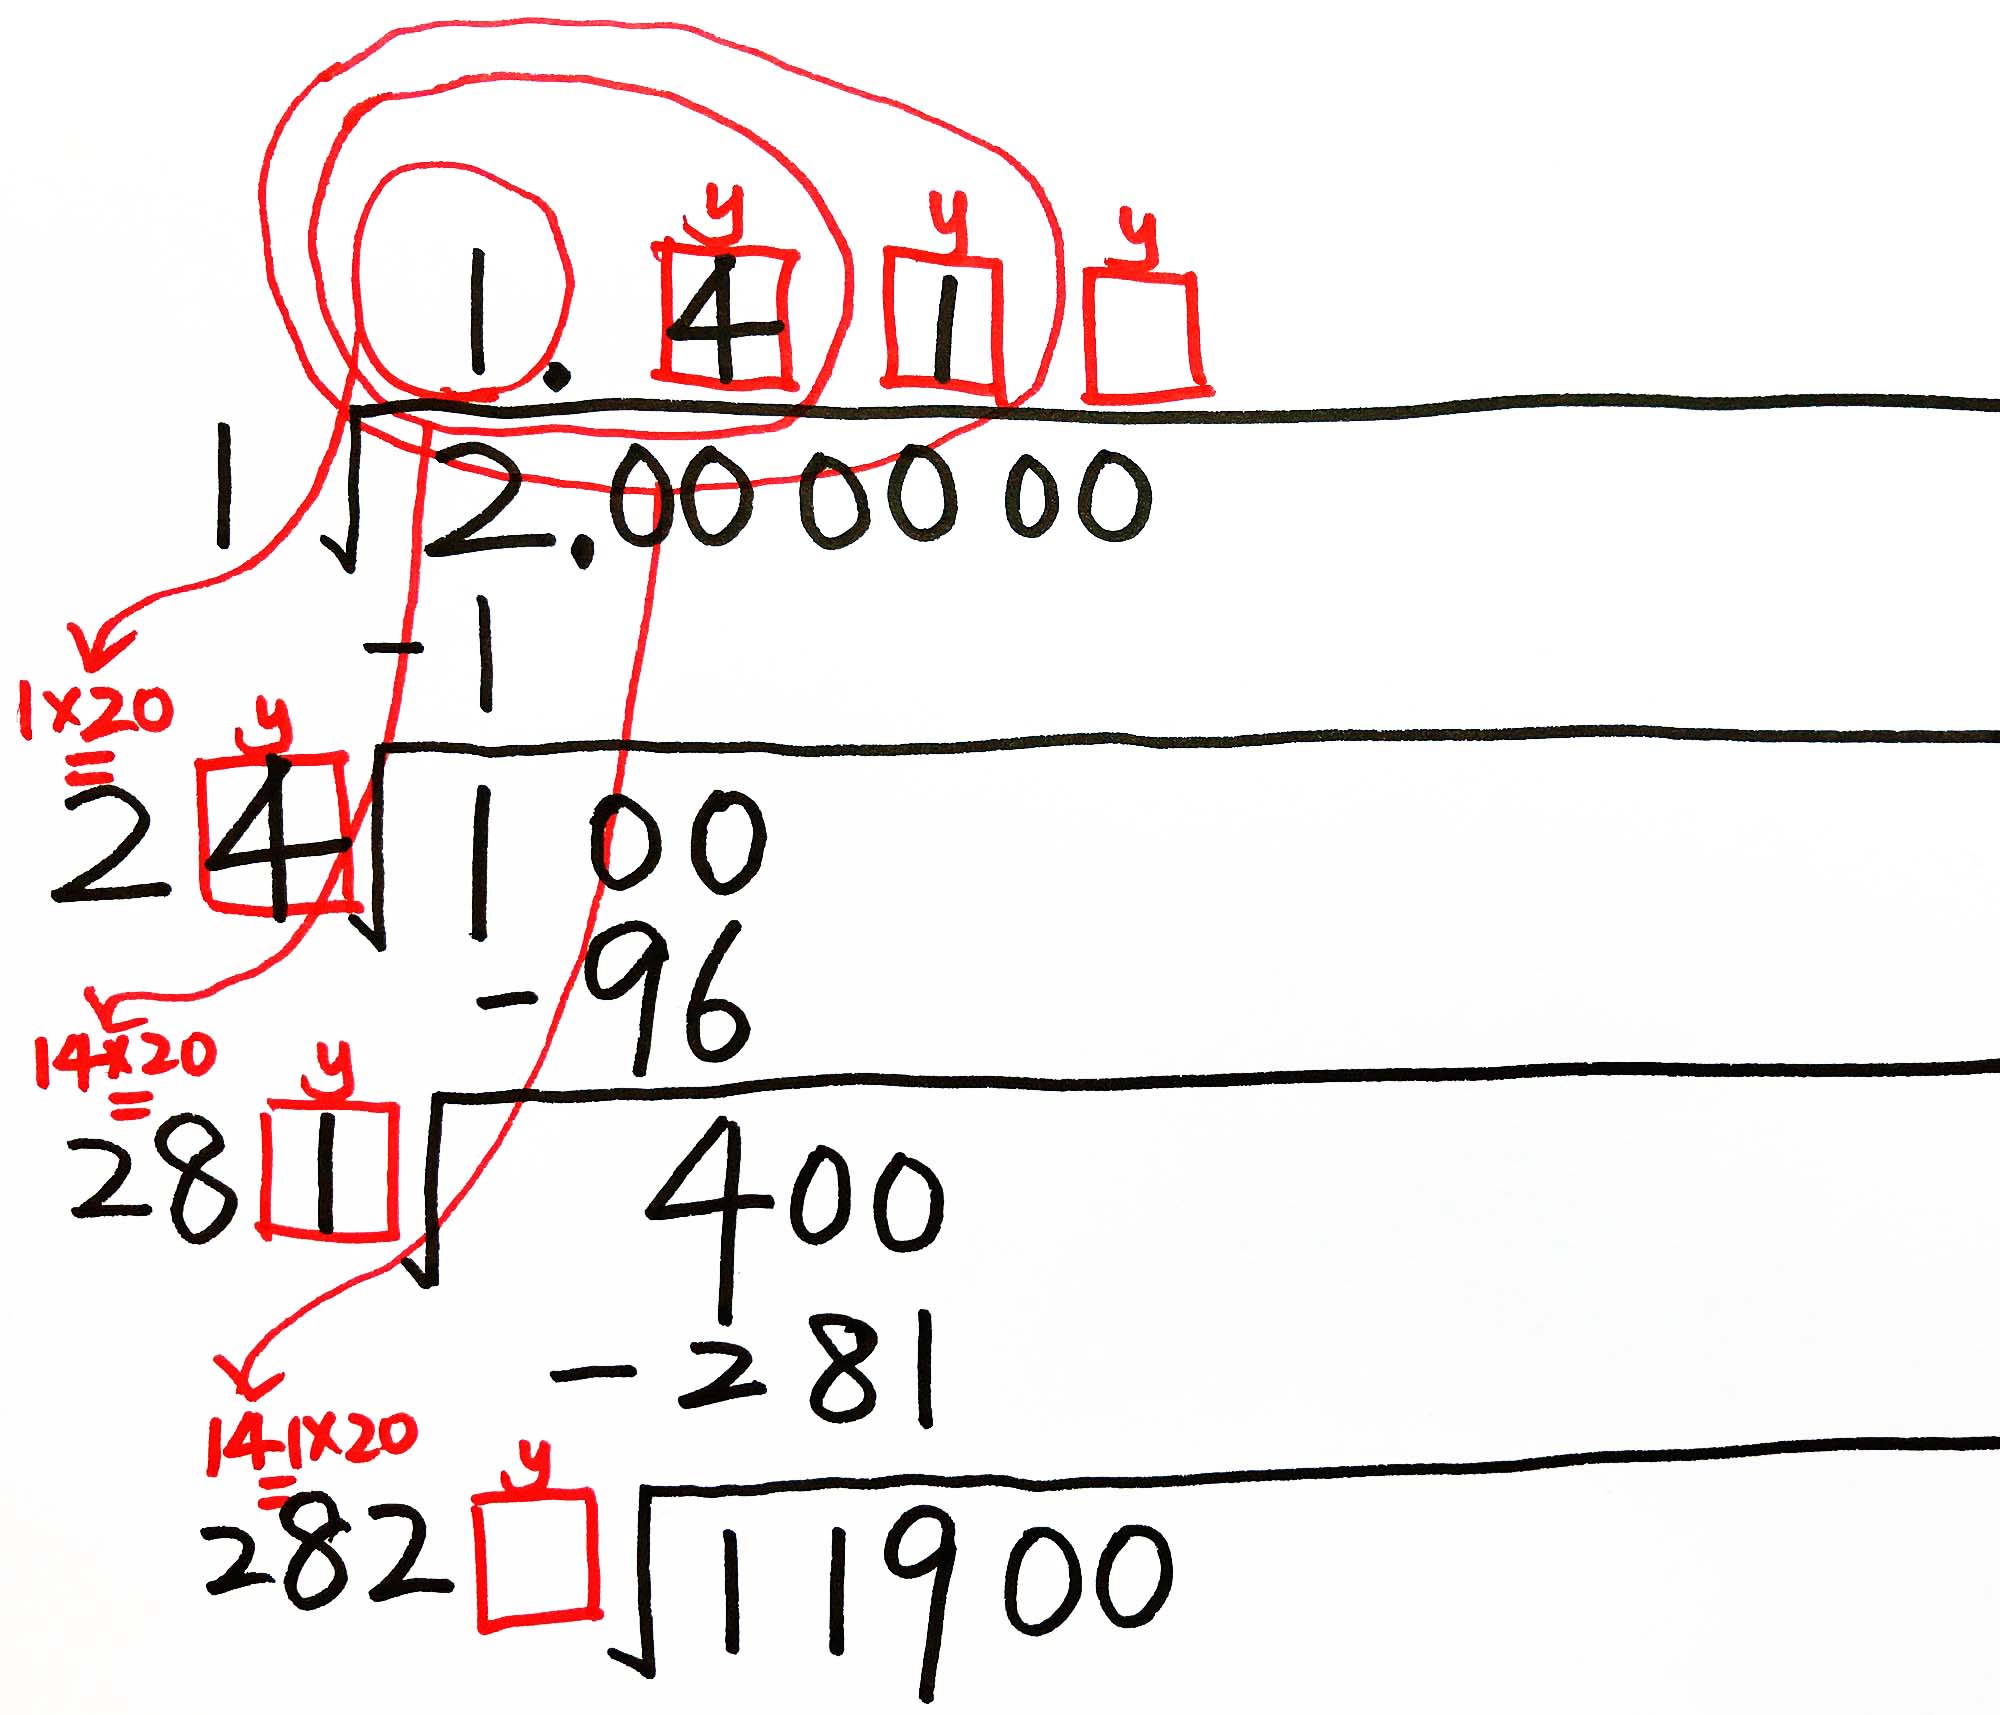 y y y
1. 4 1
1 √2.00 00 00
- 1
1×20
=
y
2 4 √1 00
- 96
14×20
=
y
28 1 √400
- 281
141×20
=
y
282 √11900